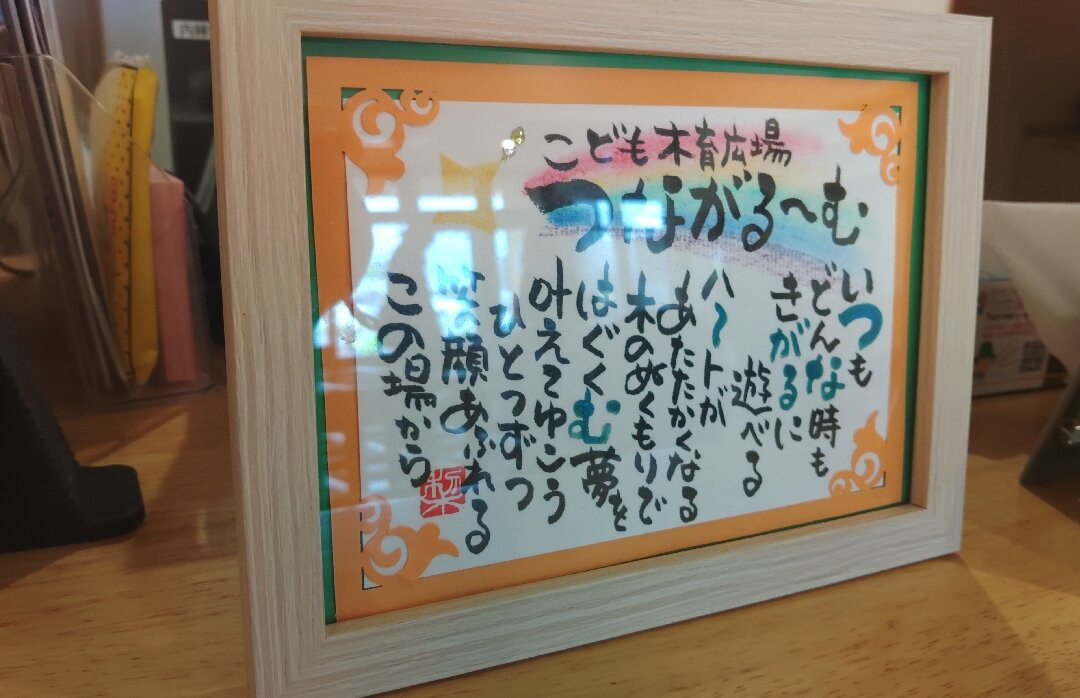 こども木育広場
つながる〜む
いつも
どんな時も
きがるに
遊べる
ハートが
あたたかくなる
木のぬくもりで
はぐくむ夢を
叶えてゆこう
ひとつずつ
笑顔あふれる
この場から